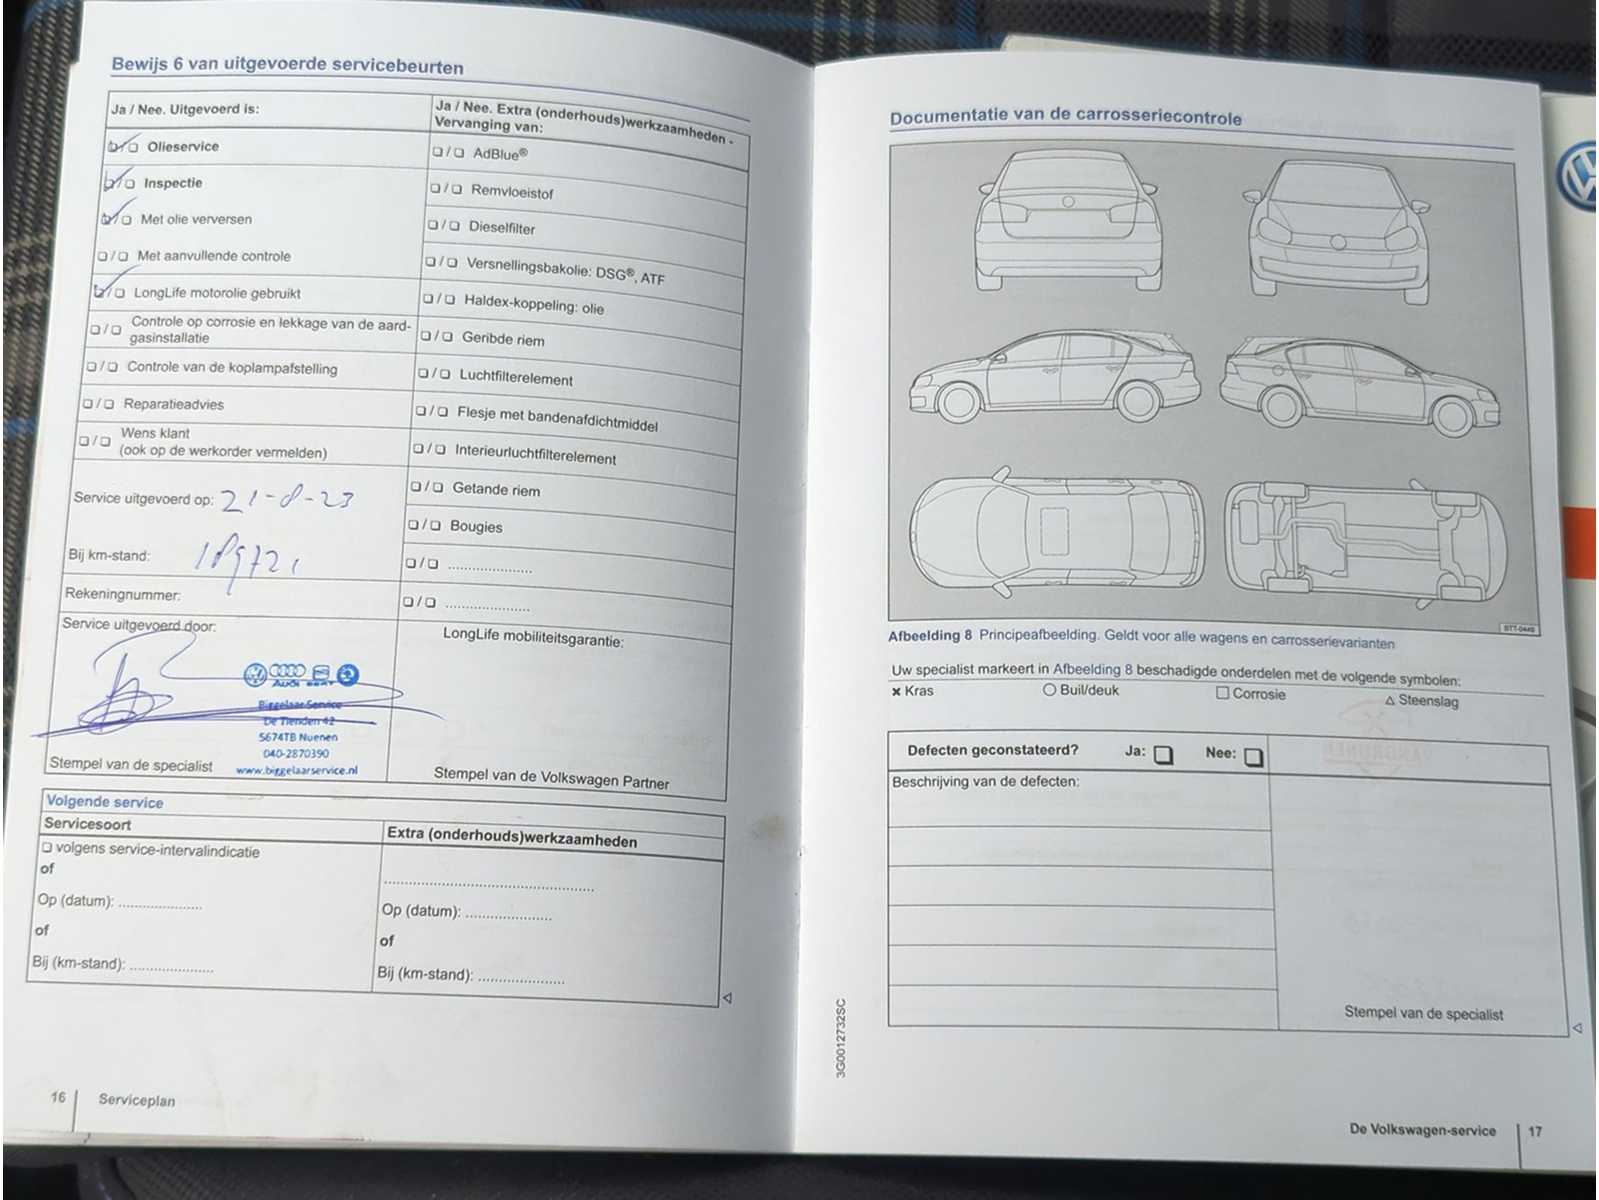 Bewijs 6 van uitgevoerde servicebeurten
Ja / Nee. Uitgevoerd is:
Olieservice
Inspectie
Met olie verversen
Met aanvullende controle
LongLife motorolie gebruikt
Controle op corrosie en lekkage van de aard-
gasinstallatie
Controle van de koplampafstelling
Reparatieadvies
Wens klant
(ook op de werkorder vermelden)
Service uitgevoerd op: 21-8-23
Bij km-stand: 189721
Rekeningnummer:
Service uitgevoerd door:
AUDI SEAT
Biggelaar Service
De Tienden 42
5674TB Nuenen
040-2870390
www.biggelaarservice.nl
Stempel van de specialist
Ja / Nee. Extra (onderhouds)werkzaamheden -
Vervanging van:
AdBlue®
Remvloeistof
Dieselfilter
Versnellingsbakolie: DSG®, ATF
Haldex-koppeling: olie
Geribde riem
Luchtfilterelement
Flesje met bandenafdichtmiddel
Interieurluchtfilterelement
Getande riem
Bougies
LongLife mobiliteitsgarantie:
Stempel van de Volkswagen Partner
Volgende service
Servicesoort
volgens service-intervalindicatie
of
Op (datum): ....................
of
Bij (km-stand): ....................
Extra (onderhouds)werkzaamheden
Op (datum): ....................
of
Bij (km-stand): ....................
16
Serviceplan
Documentatie van de carrosseriecontrole
BTT-0449
Afbeelding 8 Principeafbeelding. Geldt voor alle wagens en carrosserievarianten
Uw specialist markeert in Afbeelding 8 beschadigde onderdelen met de volgende symbolen:
Kras
Buil/deuk
Corrosie
Steenslag
Defecten geconstateerd? Ja: Nee:
Beschrijving van de defecten:
Stempel van de specialist
3G0012732SC
De Volkswagen-service
17